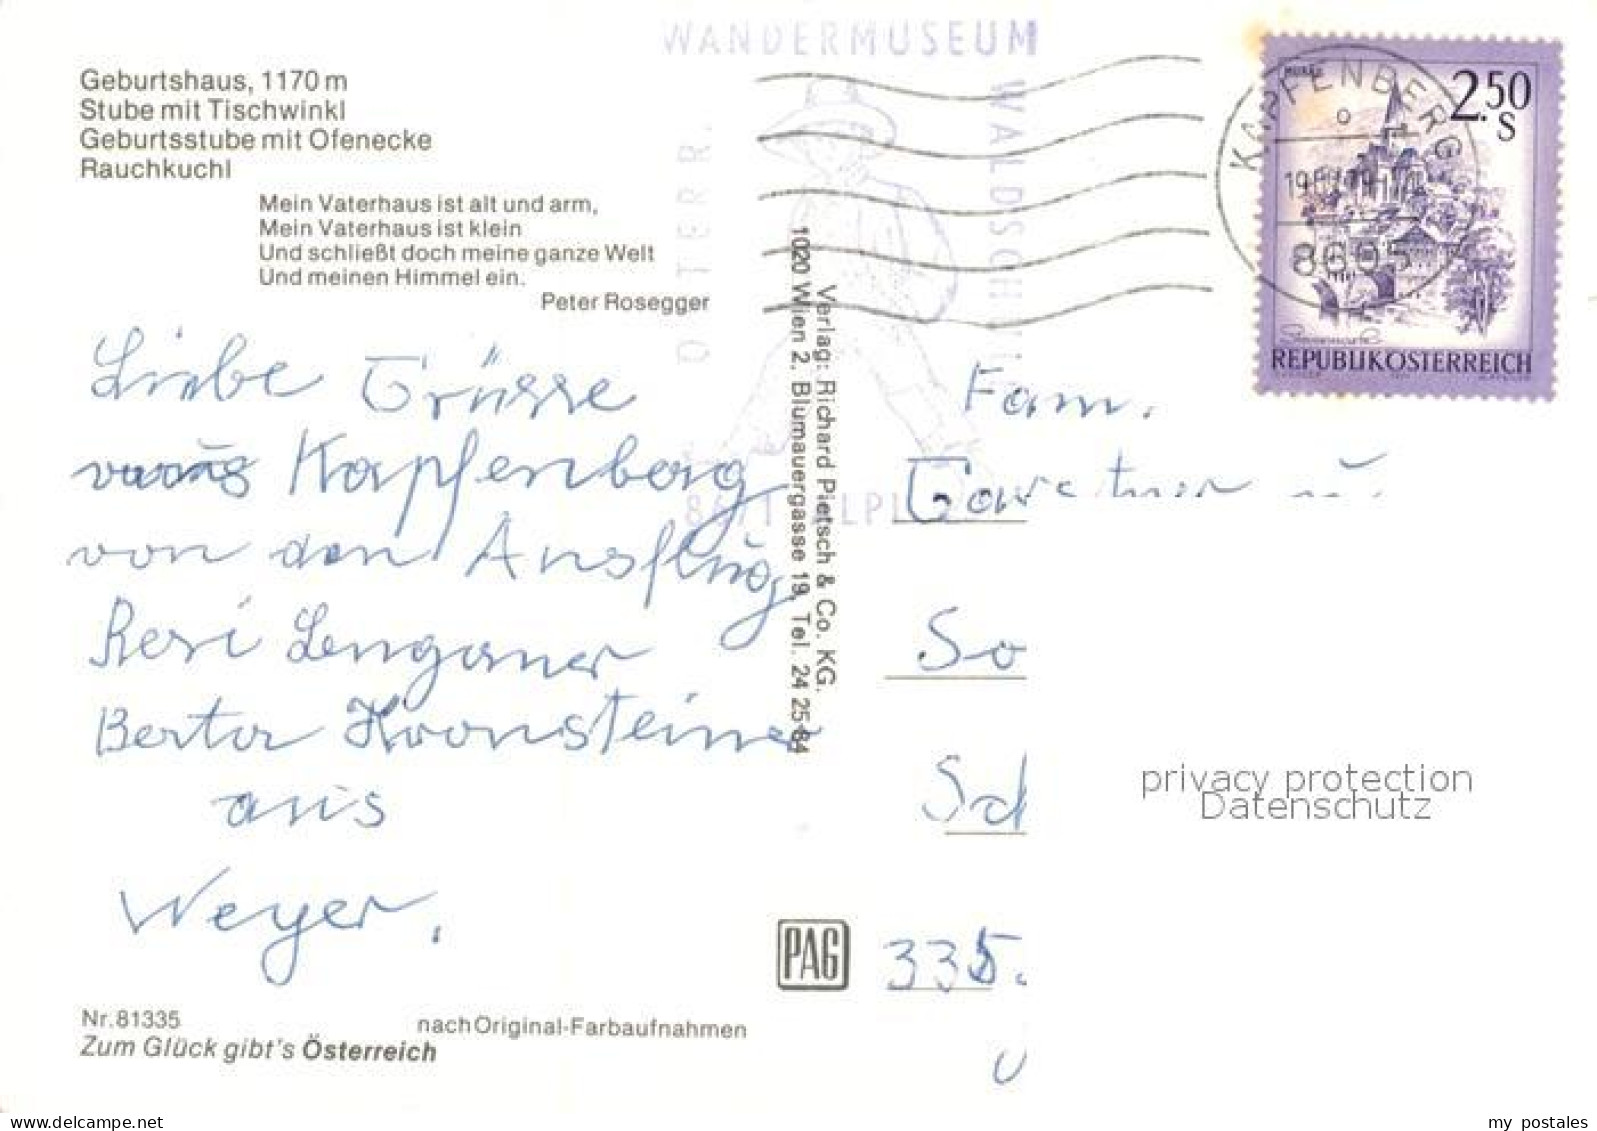 WANDERMUSEUM
WALDSCH
Geburtshaus, 1170 m
Stube mit Tischwinkl
Geburtsstube mit Ofenecke
Rauchkuchl
Mein Vaterhaus ist alt und arm,
Mein Vaterhaus ist klein
Und schließt doch meine ganze Welt
Und meinen Himmel ein.
Peter Rosegger
KAPFENBERG
8605
MURAU
2.50
S
REPUBLIK ÖSTERREICH
Liebe Grüsse
Kapfenberg
von den Ausflug
Resi Lengauer
Berta Kronsteiner
aus
Weyer.
Verlag: Richard Pietsch & Co. KG.
1020 Wien 2, Blumauergasse 19, Tel. 24 25 84
Fam.
Gerstner u.
So
Sch
335.
privacy protection
Datenschutz
PAG
Nr. 81335
nach Original-Farbaufnahmen
Zum Glück gibt's Österreich
delcampe.net
my_postales